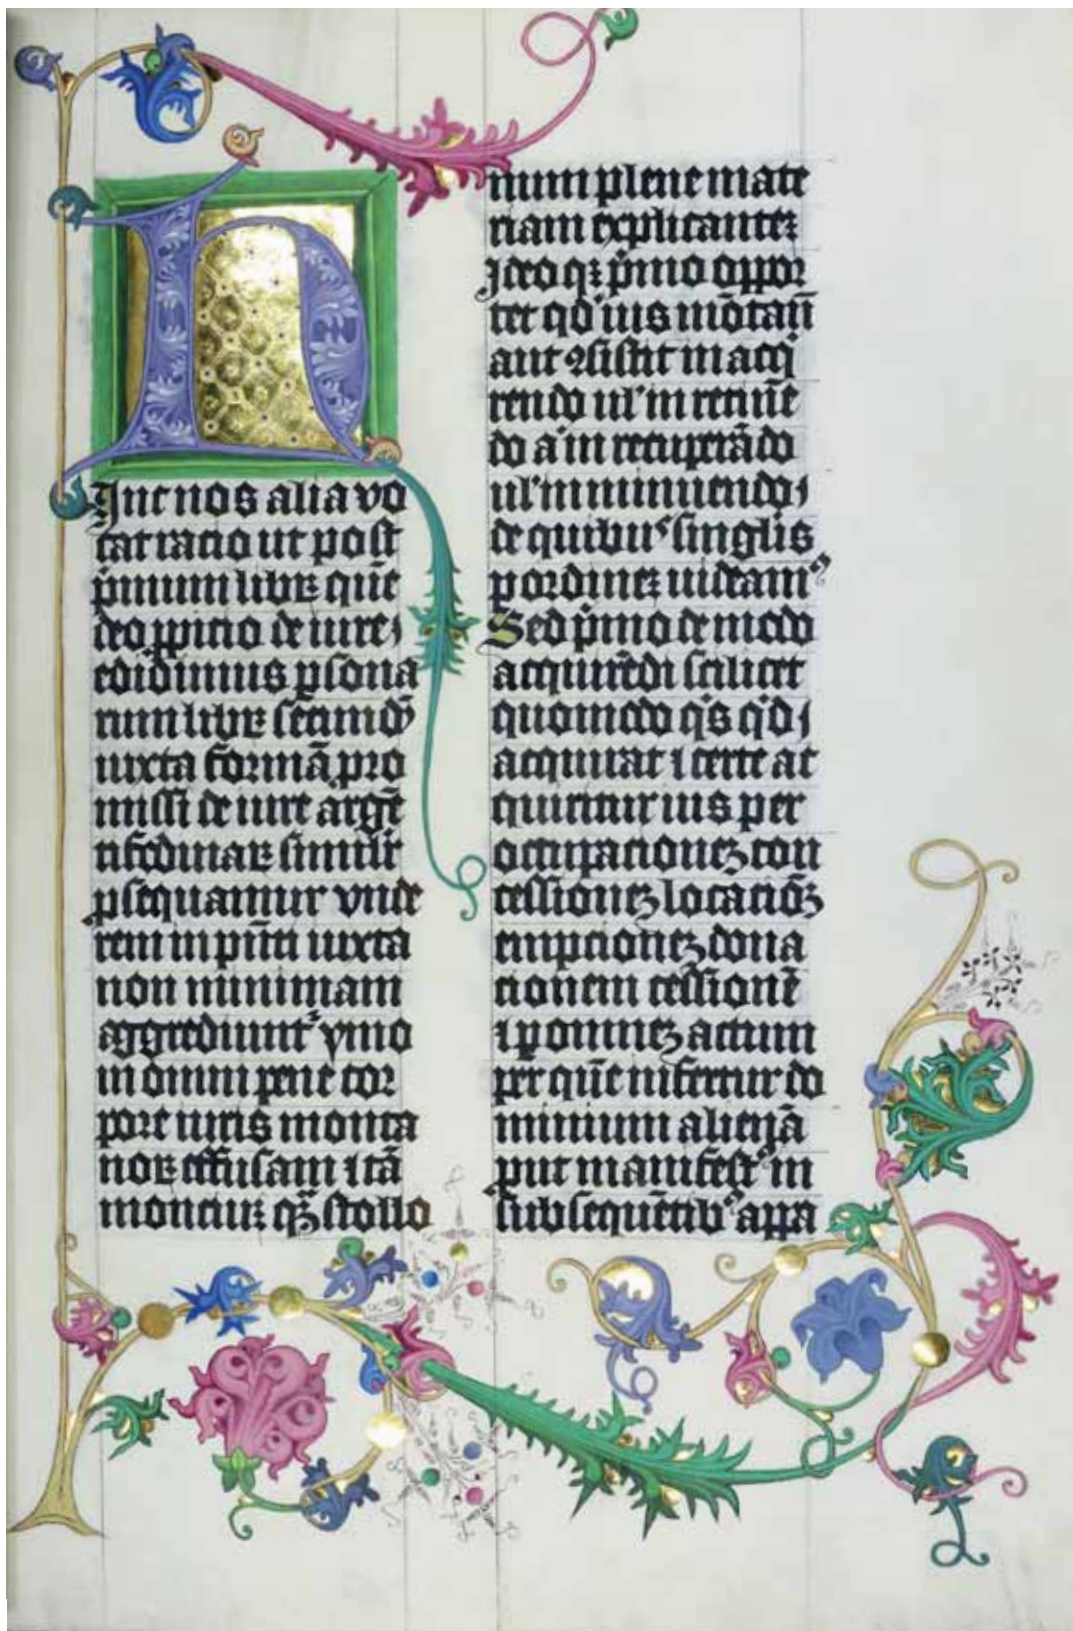 H
Inc nos alia vo
cat racio ut post
p̄mum libꝝ quē
deo ꝓpicio de iure
edidimus ꝑsona
rum libꝝ sec̄undꝫ
iuxta formā pro
missi de iure argē
tifodinaꝝ simili
ꝑsequamur vnde
rem in p̄nti iuxta
non minimam
aggrediunt᷑ ymo
in omni pene cor
pore iuris monta
noꝝ effusam
num plene mate
riam explicantez
Ideo qꝫ p̄mo oppor
tet qd̄ ius mōtan̄
aut ꝯsistit in acq̄
rendo ul' in retinē
do a' in recuꝑādo
ul' in minuendo
de quibus singlis
ꝑ ordinez uideam᷑
Sed p̄mo de modo
acquirēdi scilicet
quomodo q's q'd
acquirat ⁊ certe ac
quiritur ius per
occupacionez con
cessionez locaciōꝫ
empcionez dona
cionem cessionē
actum
per quē infertur do
minium
put manifest᷑ in
subsequētibꝰ appa